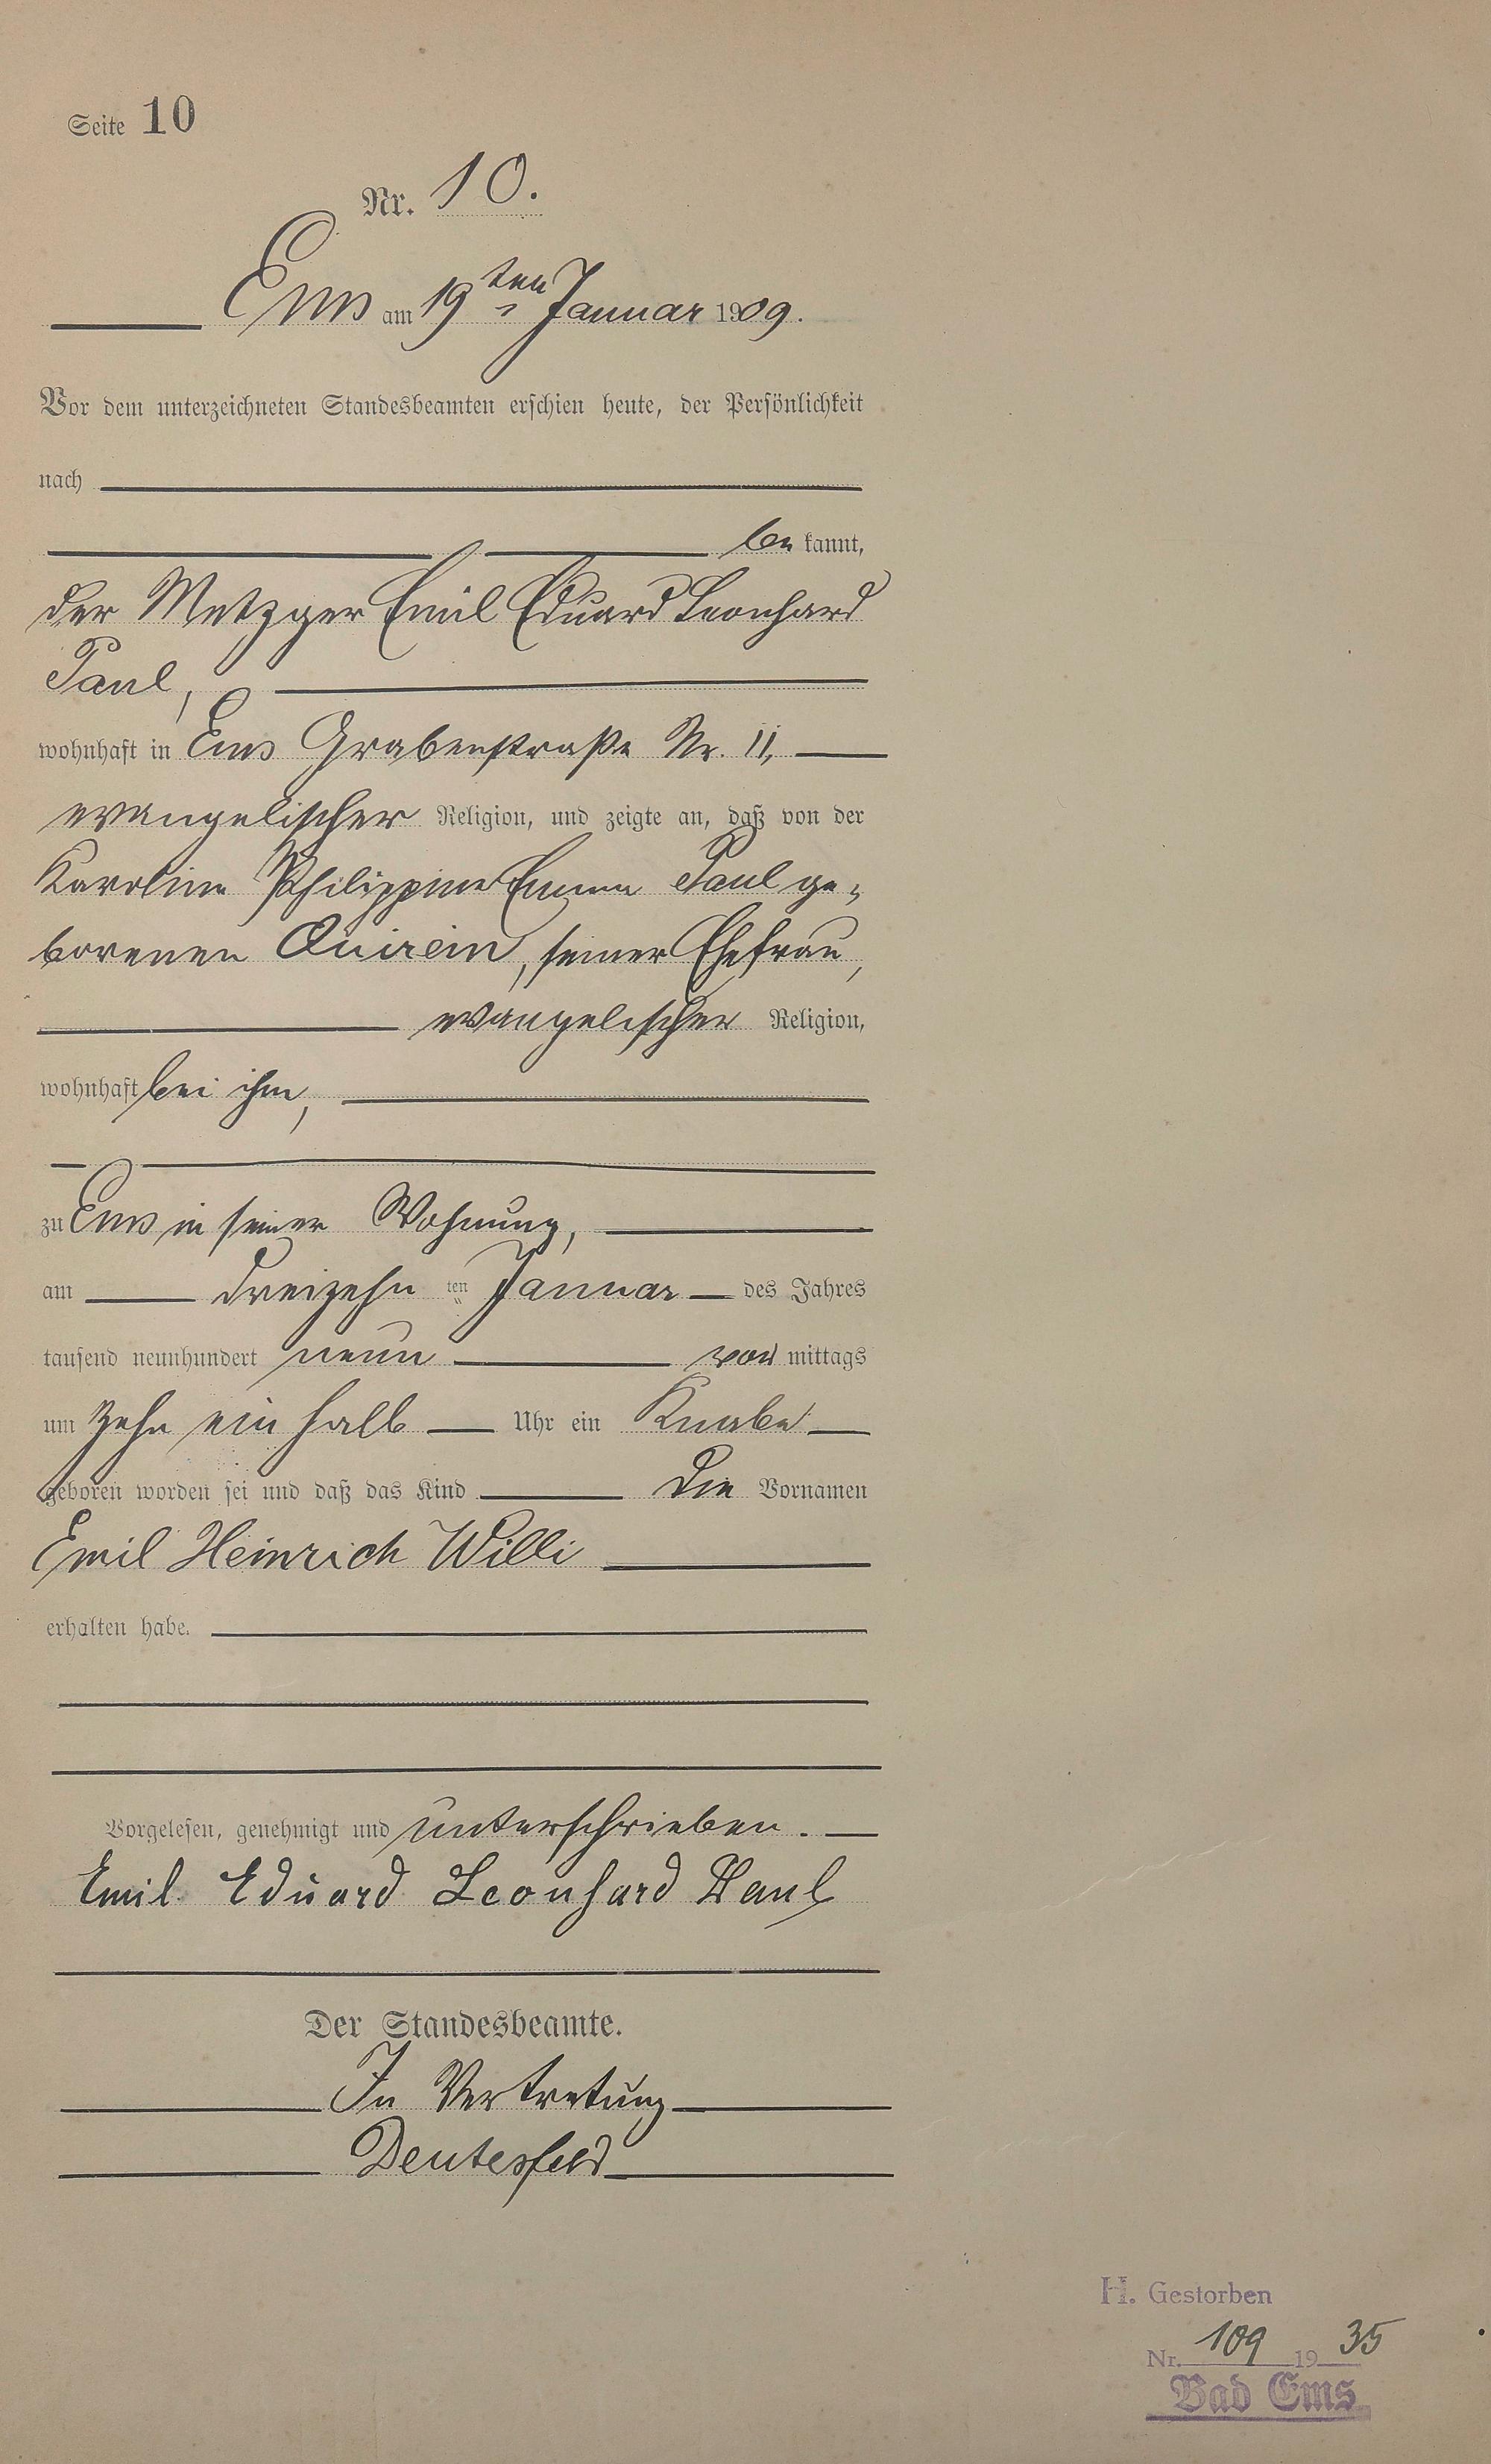 Seite 10
Nr. 10.
Ems am 19ten Januar 1909.
Vor dem unterzeichneten Standesbeamten erschien heute, der Persönlichkeit
nach
be kannt,
der Metzger Emil Eduard Leonhard
Paul,
wohnhaft in Ems Grabenstraße Nr. 11,
evangelischer Religion, und zeigte an, daß von der
Karoline Philippine Emma Paul ge-
borenen Quirein, seiner Ehefrau,
evangelischer Religion,
wohnhaft bei ihm,
zu Ems in seiner Wohnung,
am dreizehn ten Januar des Jahres
tausend neunhundert neun vor mittags
um zehn ein halb Uhr ein Knabe
geboren worden sei und daß das Kind die Vornamen
Emil Heinrich Willi
erhalten habe.
Vorgelesen, genehmigt und unterschrieben.
Emil Eduard Leonhard Paul
Der Standesbeamte.
In Vertretung
Deutesfeld
H. Gestorben
Nr. 109 19 35
Bad Ems